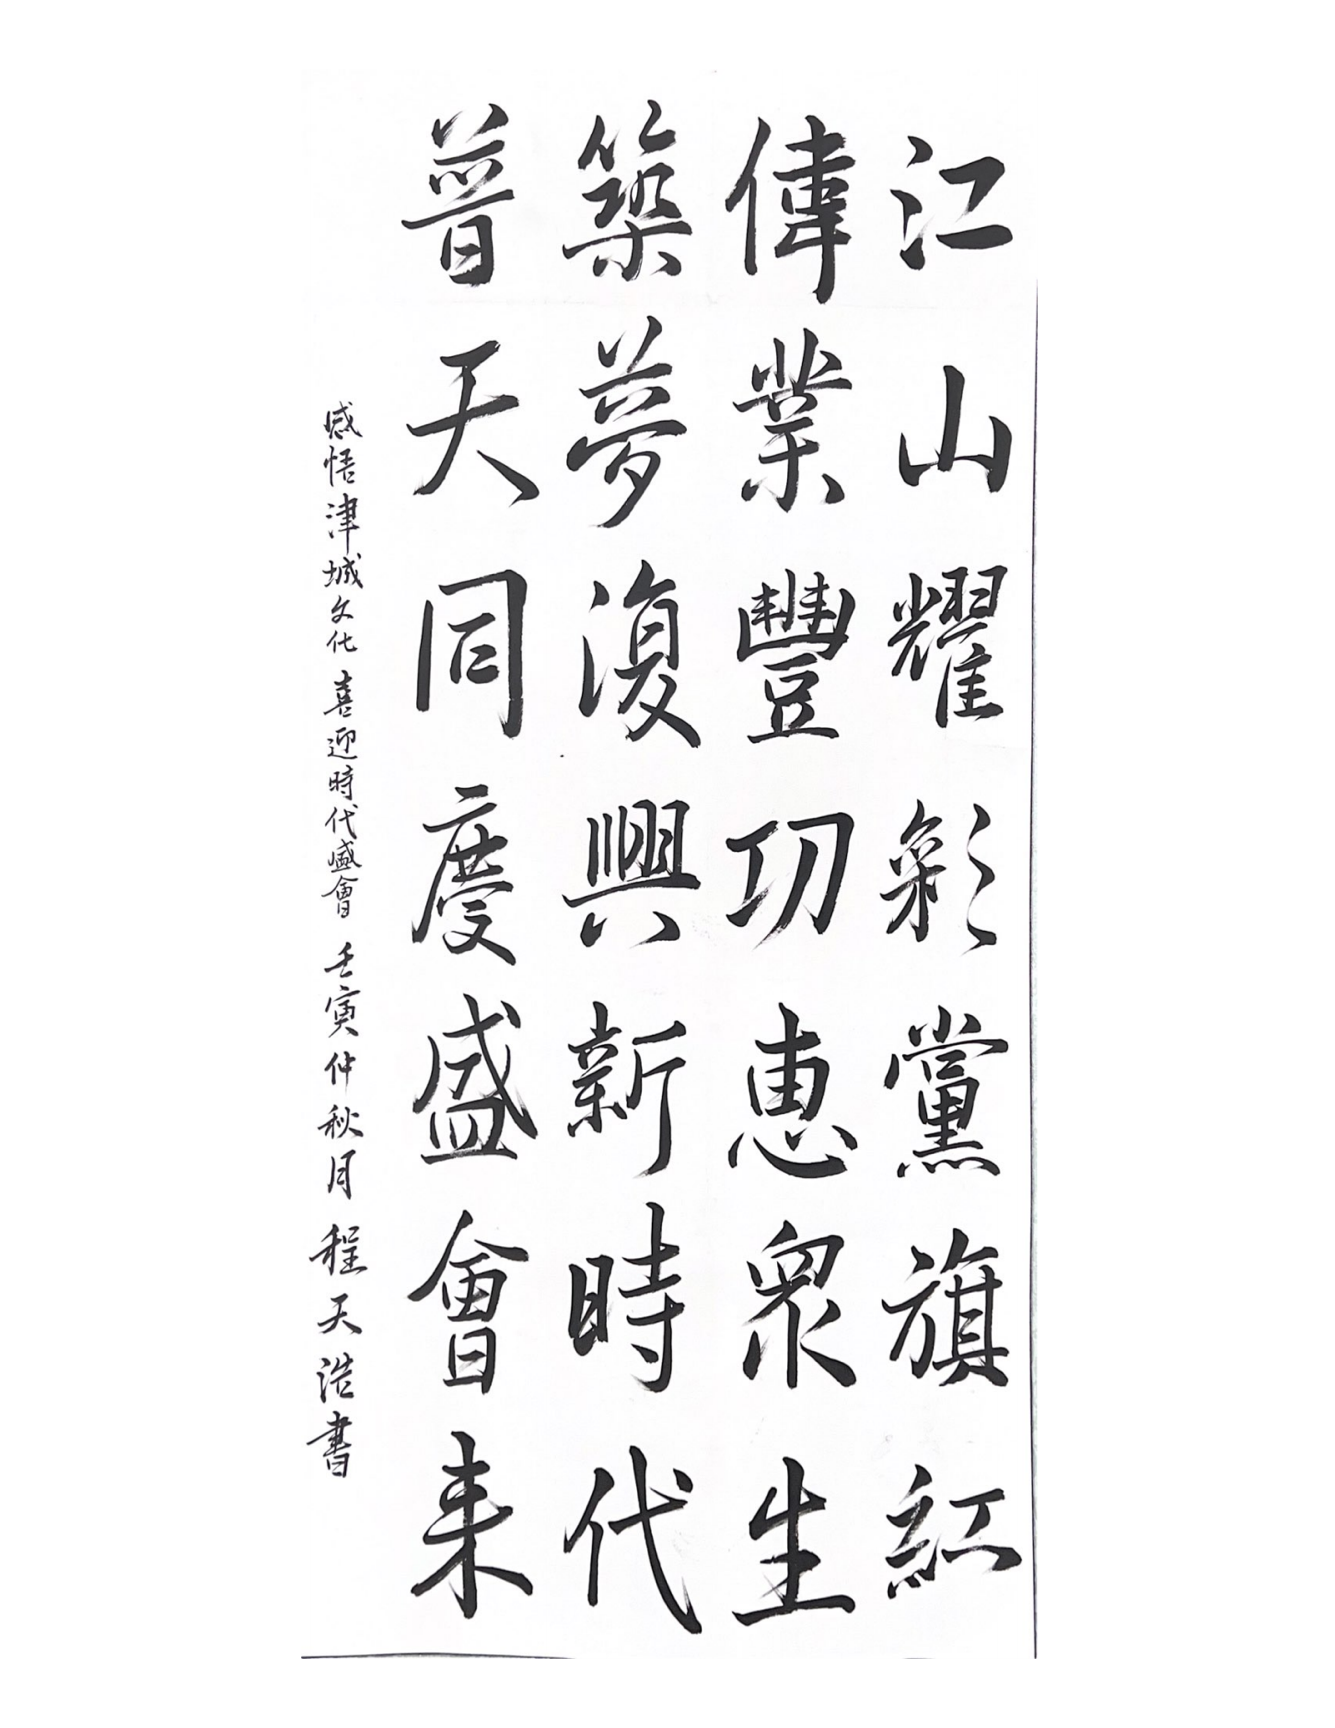 江山耀彩黨旗紅
偉業豐功惠眾生
築夢復興新時代
普天同慶盛會來
感悟津城文化 喜迎時代盛會 壬寅仲秋月 程天浩書